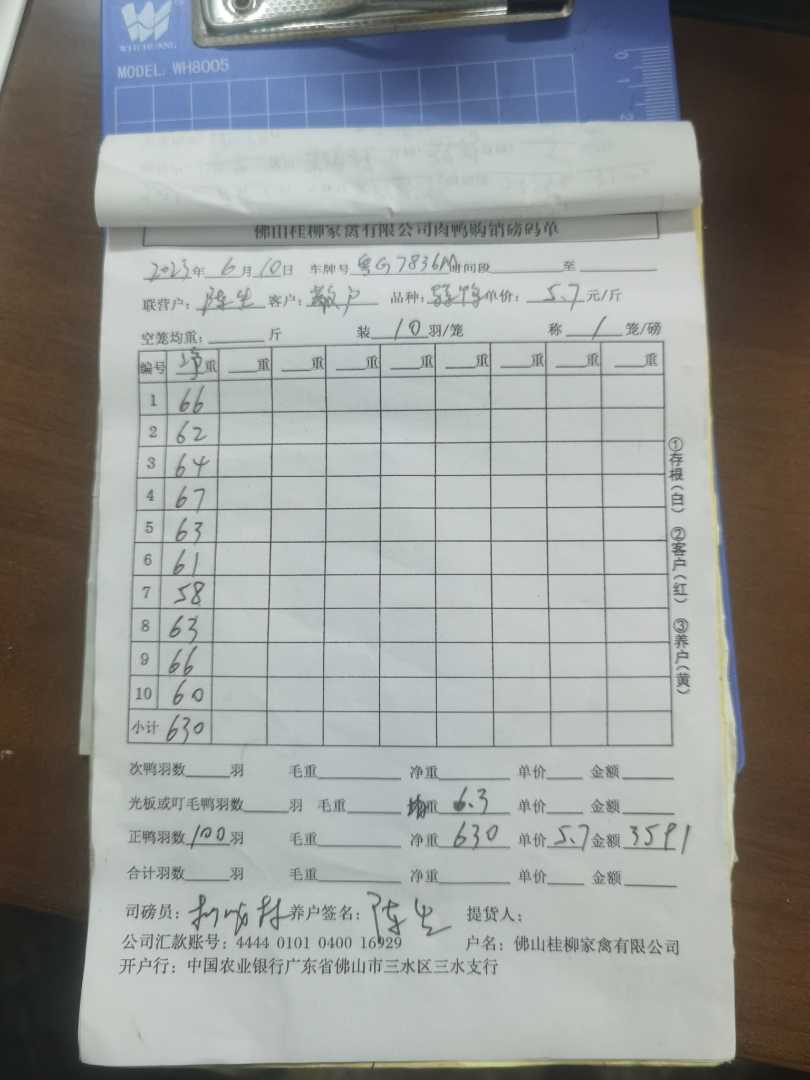 WHI HUANG
MODEL: WH8005
0 1 2
佛山桂柳家禽有限公司肉鸭购销磅码单
2023年 6月10日 车牌号 粤G7836M 时间段 至
联营户: 陈生 客户: 散户 品种: 单价: 5.7 元/斤
空笼均重: 斤 装 10 羽/笼 称 1 笼/磅
编号 净重 重 重 重 重 重 重 重 重
1 66
2 62
3 64
4 67
5 63
6 61
7 58
8 63
9 66
10 60
小计 630
①存根(白) ②客户(红) ③养户(黄)
次鸭羽数 羽 毛重 净重 单价 金额
光板或叮毛鸭羽数 羽 毛重 均重 6.3 单价 金额
正鸭羽数 100 羽 毛重 净重 630 单价 5.7 金额 3591
合计羽数 羽 毛重 净重 单价 金额
司磅员: 养户签名: 陈生 提货人:
公司汇款账号: 4444 0101 0400 16929 户名: 佛山桂柳家禽有限公司
开户行: 中国农业银行广东省佛山市三水区三水支行